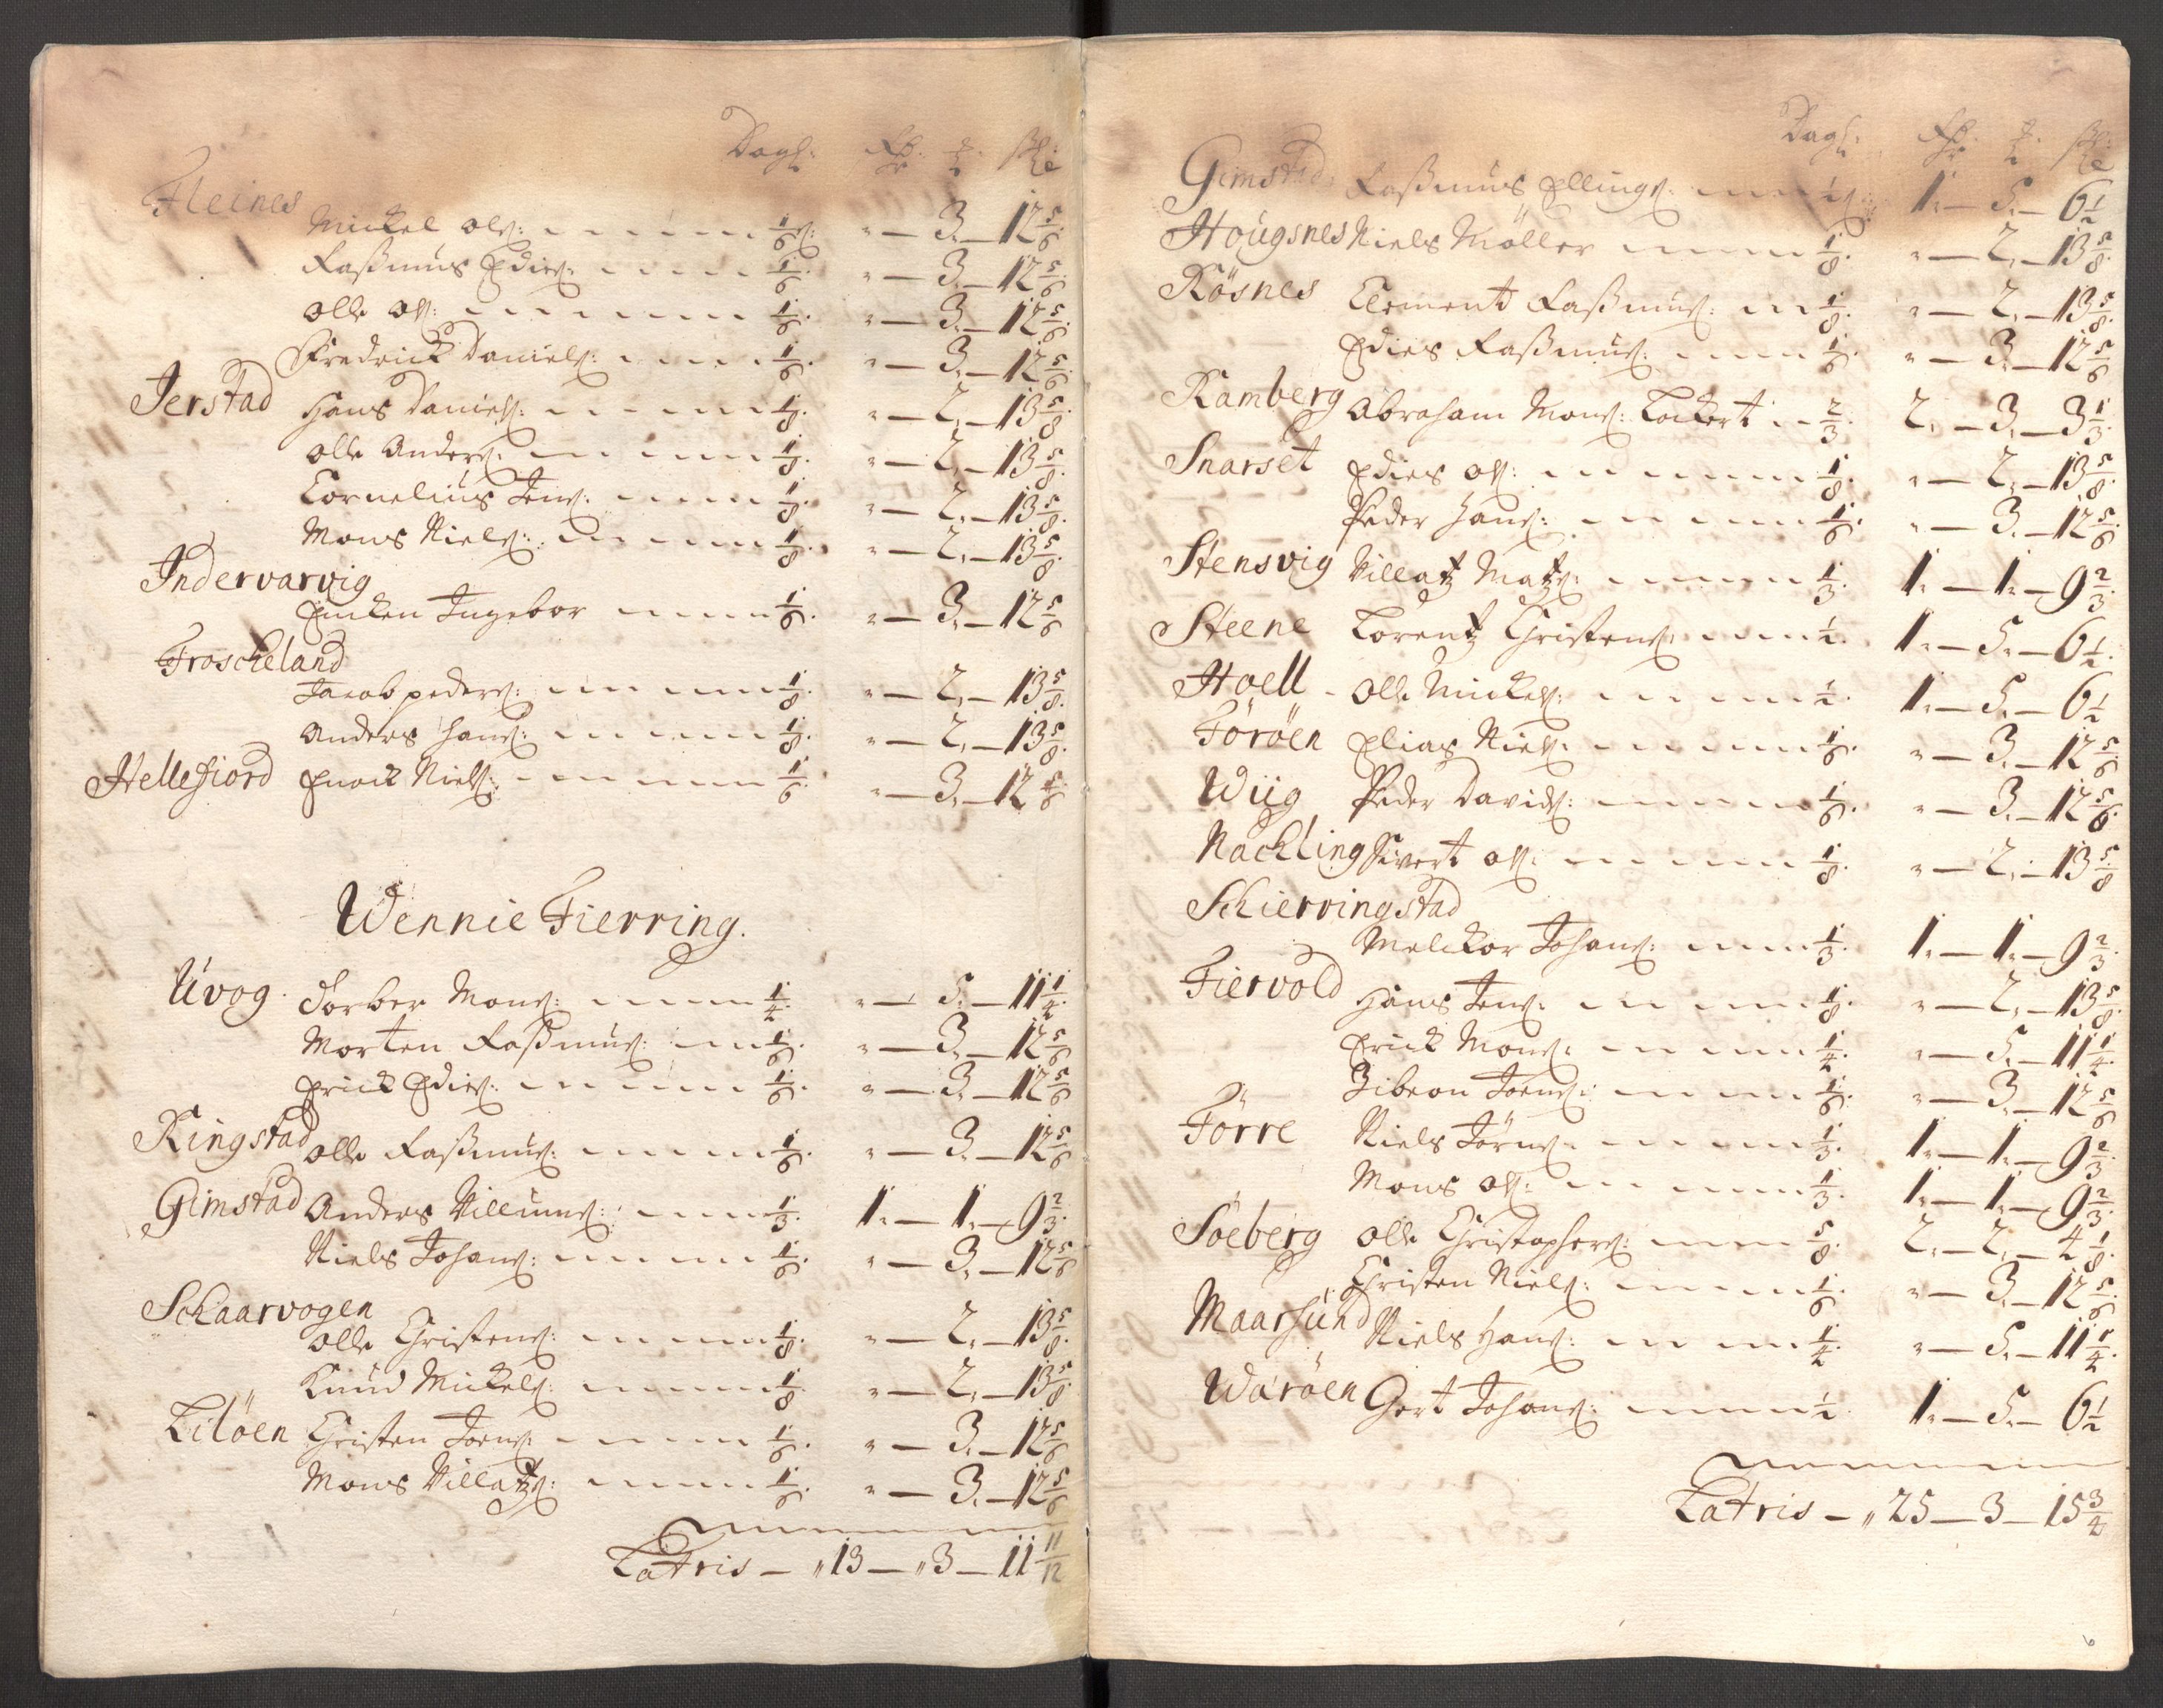 Dagl: Rdr: ₰. sk:
Fleines
Mickel Ols: 1/6 s: " — 3. — 12 5/6.
Rassmus Edis: 1/6. " — 3. — 12 5/6.
Olle Ols: 1/6. " — 3. — 12 5/6.
Fredrick Daniels: 1/6. " — 3. — 12 5/6.
Jerstad Hans Daniels: 1/8. " — 2. — 13 5/8.
Olle Anders: 1/8. " — 2. — 13 5/8.
Cornelius Jens: 1/8. " — 2. — 13 5/8.
Mons Niels: 1/8. " — 2. — 13 5/8.
Indervarvig
Encken Ingebor 1/6. " — 3. — 12 5/6
Froscheland
Jacob peders: 1/8. " — 2. — 13 5/8.
Anders Hans: 1/8. " — 2. — 13 5/8.
Hellefiord Enock Niels: 1/6. " — 3. — 12 5/6
Wennie Fierring.
Uvog. Torber Mons: 1/4. " — 5. — 11 1/4.
Morten Rassmus: 1/6. " — 3. — 12 5/6
Erick Edis: 1/6. " — 3. — 12 5/6
Ringstad Olle Rassmus: 1/6. " — 3. — 12 5/6
Gimstad Anders Villums: 1/3. 1. — 1. — 9 2/3.
Niels Johans: 1/6. " — 3. — 12 5/6
Schaarvogen
Olle Christens: 1/8. " — 2. — 13 5/8.
Knud Mickels: 1/8 " — 2. — 13 5/8.
Lilöen Christen Joens: 1/6. " — 3. — 12 5/6
Mons Villatzs: 1/6. " — 3. — 12 5/6
Latris — " 13 — " 3 — 11 11/12
Dagl: Rdr: ₰. sk:
Gimstad: Rassmus Ellings: 1/2 s: 1. — 5. — 6 1/2
Hougsnes Niels Möller 1/8. " — 2. — 13 5/8.
Rösnes Clement Rassmus: 1/8. " — 2. — 13 5/8.
Edies Rassmus: 1/6. " — 3. — 12 5/6
Ramberg Abraham Mons: Lockert 2/3. 2. — 3. — 3 1/3.
Snarset Edies Ols: 1/8. " — 2. — 13 5/8.
Peder Hans: 1/6. " — 3. — 12 5/6.
Stensvig Villatz Matzs: 1/3. 1. — 1. — 9 2/3.
Steene Lorentz Christens: 1/2. 1. — 5. — 6 1/2.
Hoell Olle Mickels: 1/2. 1. — 5. — 6 1/2
Föröen Elias Niels: 1/6. " — 3. — 12 5/6.
Wiig Peder Davids: 1/6. " — 3. — 12 5/6.
Nachling Sivert Ols: 1/8. " — 2. — 13 5/8
Schiervingstad
Melckor Johans: 1/3. 1. — 1. — 9 2/3.
Fiervold Hans Jens: 1/8. " — 2. — 13 5/8.
Erick Mons: 1/4. " — 5. — 11 1/4
Zibeon Joens: 1/6. " — 3. — 12 5/6
Förre Niels Jörns: 1/3. 1. — 1. — 9 2/3.
Mons Ols: 1/3. 1. — 1. — 9 2/3.
Söeberg Olle Christophers: 5/8. 2. — 2. — 4 1/8.
Christen Niels: 1/6 " — 3. — 12 5/6.
Maarsund Niels Hans: 1/4. " — 5. — 11 1/4.
Waröen Gert Johans: 1/2 1. — 5. — 6 1/2
Latris — " 25 — 3 — 15 3/4
6